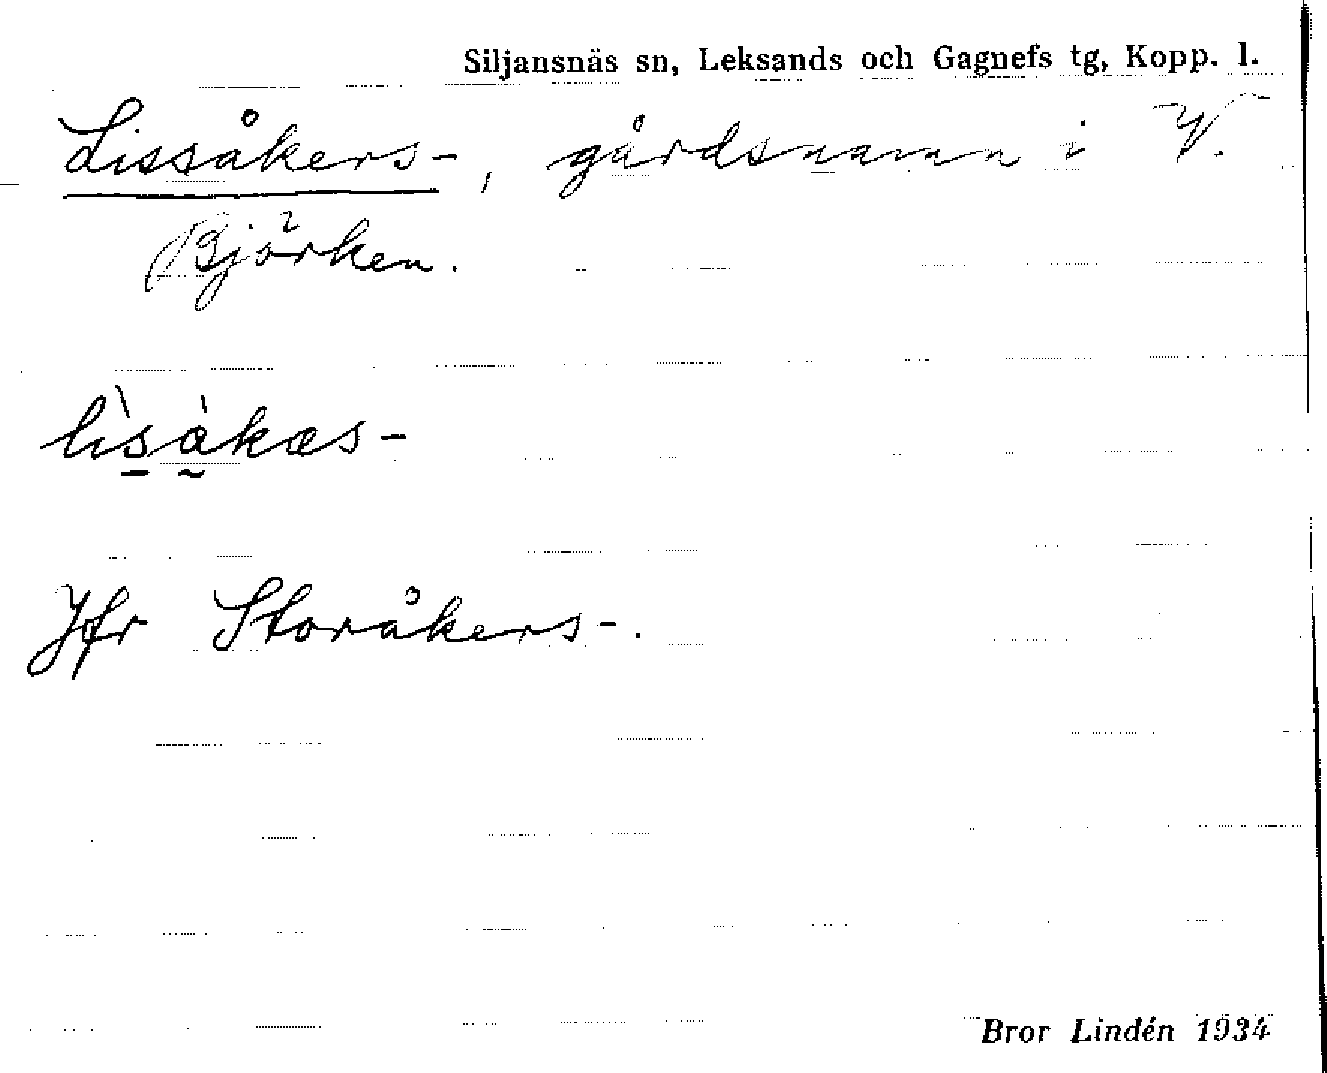 Siljansnäs sn, Leksands och Gagnefs tg, Kopp. l.
Lissåkers-, gårdsnamn i V.
Björken.
lìsàkæs-
Jfr Storåkers-.
Bror Lindén 1934